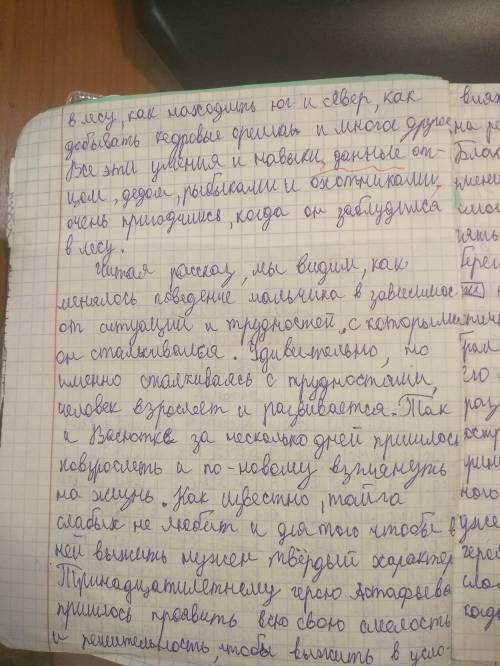 в лесу, как находить юг и север, как
добывать кедровые орешки и многое другое
Все эти умения и навыки, данные от-
цом, дедом, рыбаками и охотниками,
очень пригодились, когда он заблудился
в лесу.
Читая рассказ, мы видим, как
менялось поведение мальчика в зависимос
от ситуаций и трудностей, с которыми
он сталкивался. Удивительно, но
именно сталкиваясь с трудностями,
человек взрослеет и развивается. Так
и Васютке за несколько дней пришлось
повзрослеть и по-новому взглянуть
на жизнь. Как известно, тайга
слабых не любит и для того чтобы в
ней выжить нужен твёрдый характер
Тринадцатилетнему герою Астафьева
пришлось проявить всю свою смелость
и решительность, чтобы выжить в усло-
виях
на ре
Благ
мени
смог
пять
берег
Гра
его
раз
ост
рин
ного
Дже
герой
слаб
когда